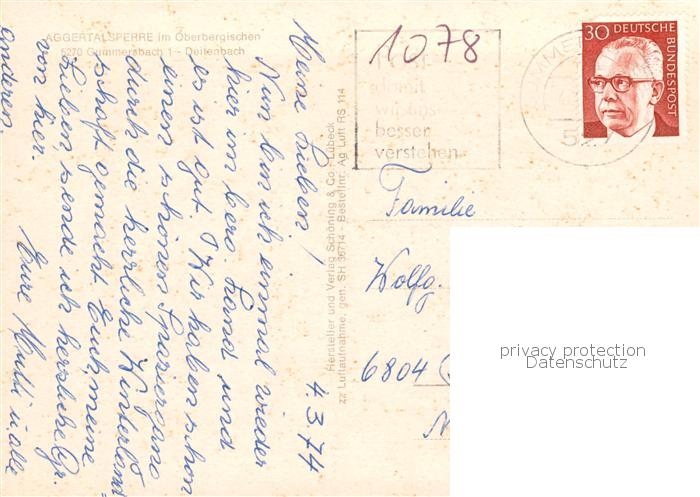 AGGERTALSPERRE im Oberbergischen
5270 Gummersbach 1 - Deitenbach
Meine Lieben!
Nun bin ich einmal wieder
hier im berg. Land und
es ist gut. Wir haben schon
einen schönen Spaziergang
durch die herrliche Winterland-
schaft gemacht. Euch meine
Lieben sende ich herzliche Gr.
von hier.
Eure Mutti u alle
anderen
4.3.74
Hersteller und Verlag Schöning & Co., Lübeck
zz Luftaufnahme, gen. SH 36714 - Bestellnr. Ag Luft RS 114
1078
damit
wir uns
besser
verstehen
527
30 DEUTSCHE
BUNDESPOST
Familie
Wolfg.
6804
privacy protection
Datenschutz